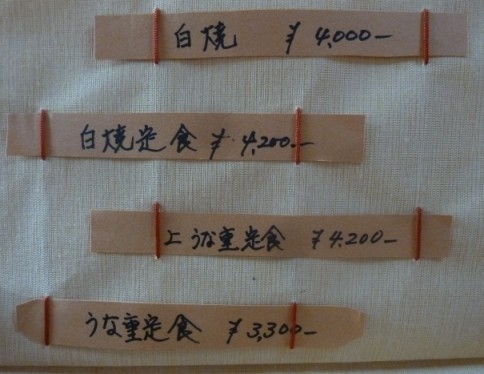 白焼 ¥4,000-
白焼定食 ¥4,200-
上うな重定食 ¥4,200-
うな重定食 ¥3,300-